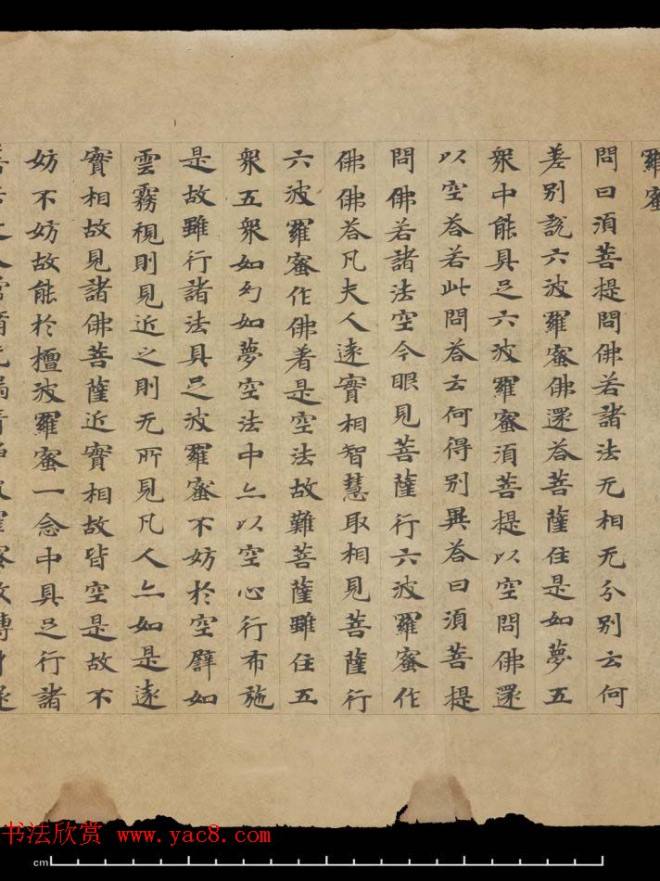 羅蜜
問曰湏菩提問佛若諸法无相无分別云何
差別說六波羅蜜佛還荅菩薩住是如夢五
衆中能具足六波羅蜜湏菩提以空問佛還
以空荅若此問荅云何得別異荅曰湏菩提
問佛若諸法空今眼見菩薩行六波羅蜜作
佛佛荅凡夫人遠實相智慧取相見菩薩行
六波羅蜜作佛者是空法故難菩薩雖住五
衆五衆如幻如夢空法中亦以空心行布施
是故雖行諸法具足波羅蜜不妨於空譬如
雲霧視則見近之則无所見凡人亦如是遠
實相故見諸佛菩薩近實相故皆空是故不
妨不妨故能於檀波羅蜜一念中具足行諸
书法欣赏 www.yac8.com
cm